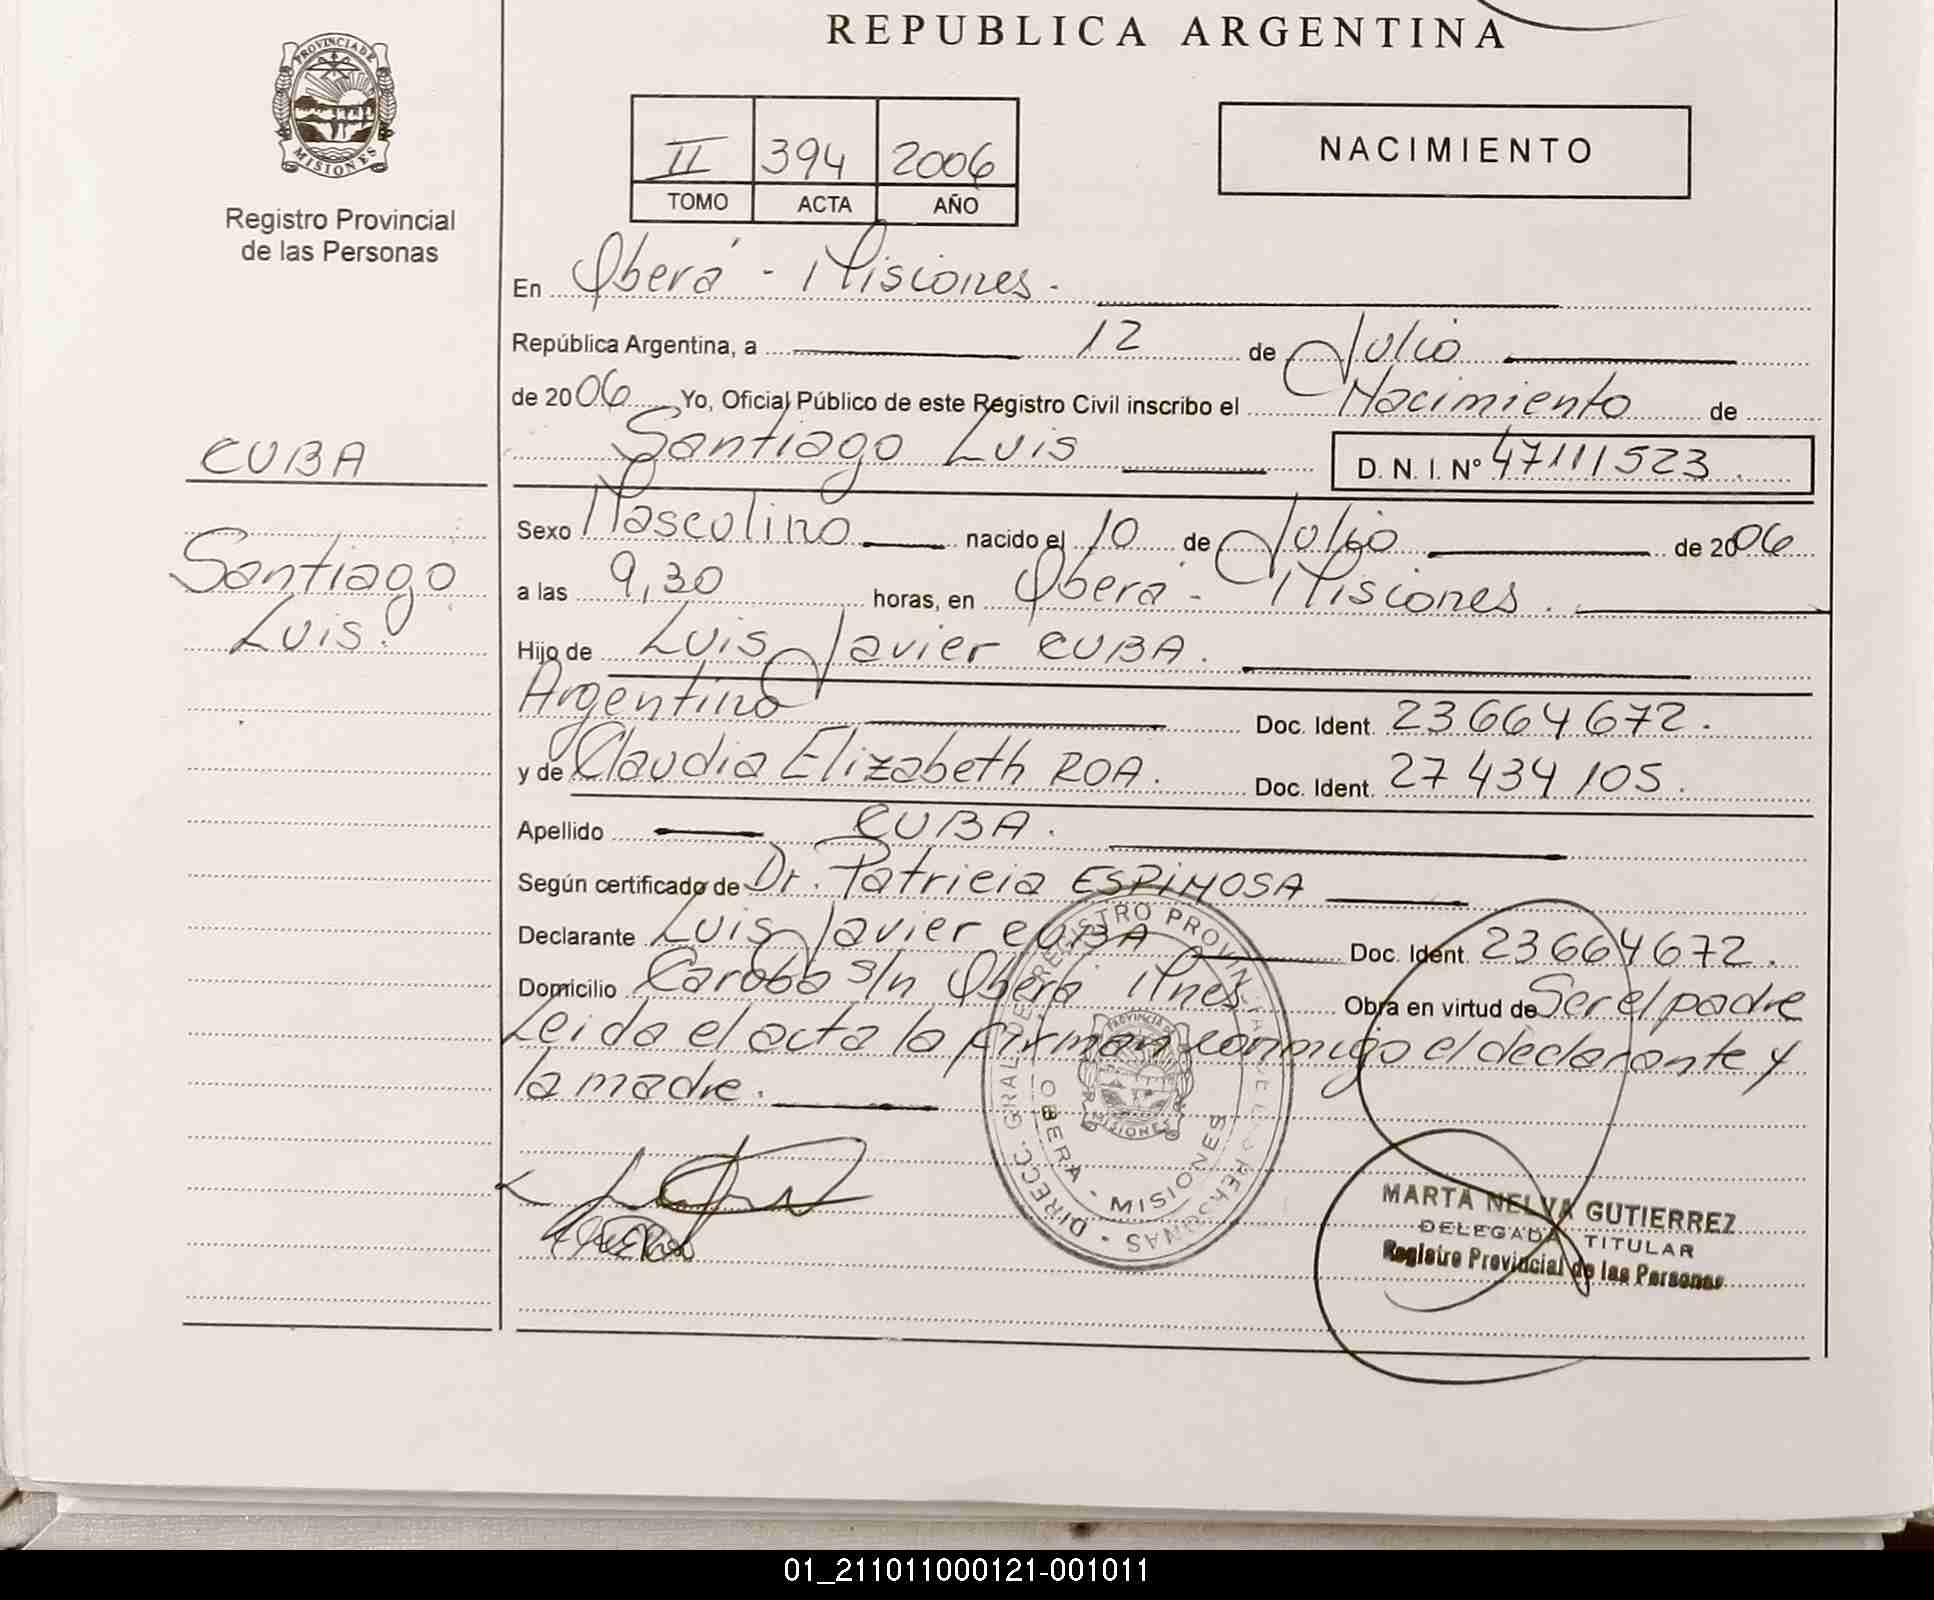 REPUBLICA ARGENTINA
PROVINCIA DE
MISIONES
Registro Provincial
de las Personas
II 394 2006
TOMO ACTA AÑO
NACIMIENTO
En Oberá - Misiones.
República Argentina, a 12 de Julio
de 2006 Yo, Oficial Público de este Registro Civil inscribo el Nacimiento de
Santiago Luis D. N. I. Nº 47111523.
CUBA
Santiago
Luis.
Sexo Masculino nacido el 10 de Julio de 2006
a las 9,30 horas, en Oberá - Misiones.
Hijo de Luis Javier CUBA.
Argentino Doc. Ident. 23664672.
y de Claudia Elizabeth ROA. Doc. Ident. 27434105.
Apellido CUBA.
Según certificado de Dr. Patricia ESPINOSA
Declarante Luis Javier CUBA Doc. Ident. 23664672.
Domicilio s/n Oberá Mnes. Obra en virtud de Ser el padre
Leida el acta la firman conmigo el declarante y
la madre.
DIRECC. GRAL. DE REGISTRO PROVINCIAL DE LAS PERSONAS
PROVINCIA DE
MISIONES
OBERA - MISIONES
MARTA NELVA GUTIERREZ
DELEGADA TITULAR
Registro Provincial de las Personas
01_211011000121-001011